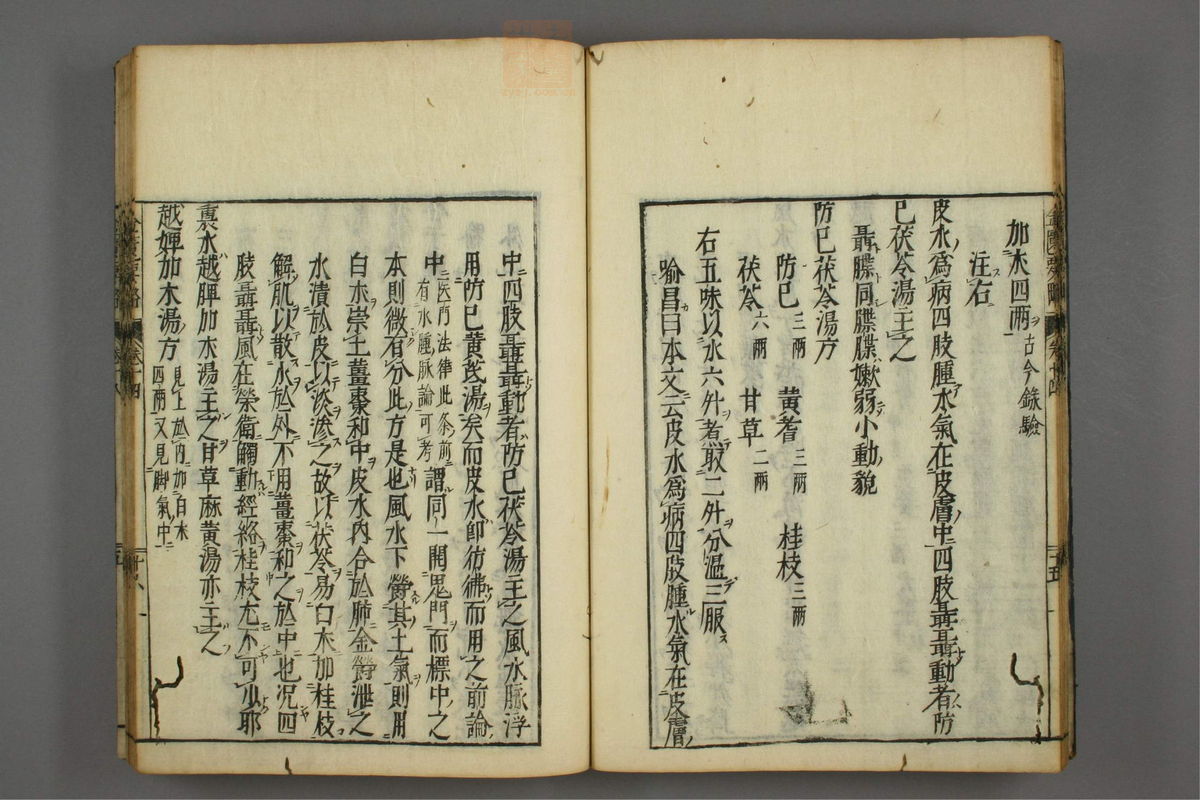 加朮四兩古今錄驗
注右
皮水爲病四肢腫水氣在皮膚中四肢聶聶動者防
已茯苓湯主之
聶牒同牒牒嫩弱小動貌
防已茯苓湯方
防已三兩 黃耆三兩 桂枝三兩
茯苓六兩 甘草二兩
右五味以水六升煮取二升分溫三服
喻昌曰本文云皮水爲病四肢腫水氣在皮膚
中四肢聶聶動者防已茯苓湯主之風水脉浮
用防已黃茋湯矣而皮水卽彷彿而用之前論
中医門法律此条前有水腫脉論可考謂同一開鬼門而標中之
本則微有分此方是也風水下欝其土氣則用
白朮崇土薑棗和中皮水內合於肺金欝泄之
水漬於皮以淡滲之故以茯苓易白朮加桂枝
解肌以散水於外不用薑棗和之於中也况四
肢聶聶風在榮衛觸動經絡桂枝尤不可少耶
裏水越脾加朮湯主之甘草麻黃湯亦主之
越婢加朮湯方見上於內加白朮四兩又見脚氣中